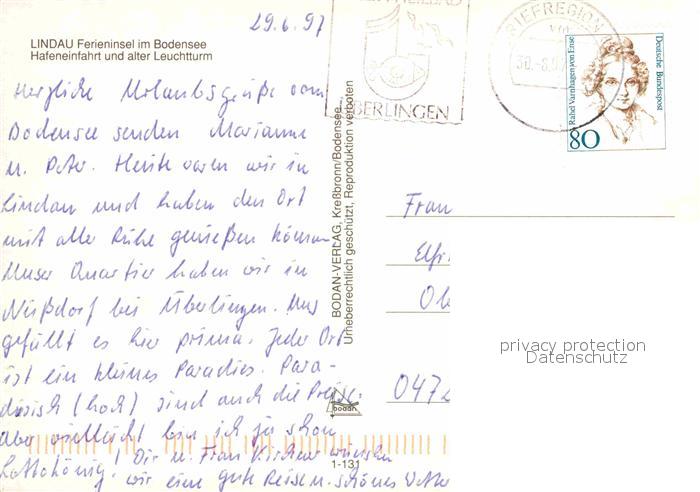 29.6.97
LINDAU Ferieninsel im Bodensee
Hafeneinfahrt und alter Leuchtturm
Herzliche Urlaubsgrüße vom
Bodensee senden Marianne
u. Peter. Heute waren wir in
Lindau und haben den Ort
mit aller Ruhe genießen können.
Unser Quartier haben wir in
Nußdorf bei Überlingen. Uns
gefällt es hier prima. Jeder Ort
ist ein kleines Paradies. Para-
diesisch (hoch) sind auch die Preise.
Aber vielleicht bin ich ja schon
Lottokönig! Dir u. Frau Kirchner wünschen
wir eine gute Reise u. schönes Wetter
BODAN-VERLAG, Kreßbronn/Bodensee
Urheberrechtlich geschützt, Reproduktion verboten
bodan
1-131
ÜBERLINGEN
BRIEFREGION
30.-6.9
Rahel Varnhagen von Ense
Deutsche Bundespost
80
Frau
Elfri
Ob
047
privacy protection
Datenschutz